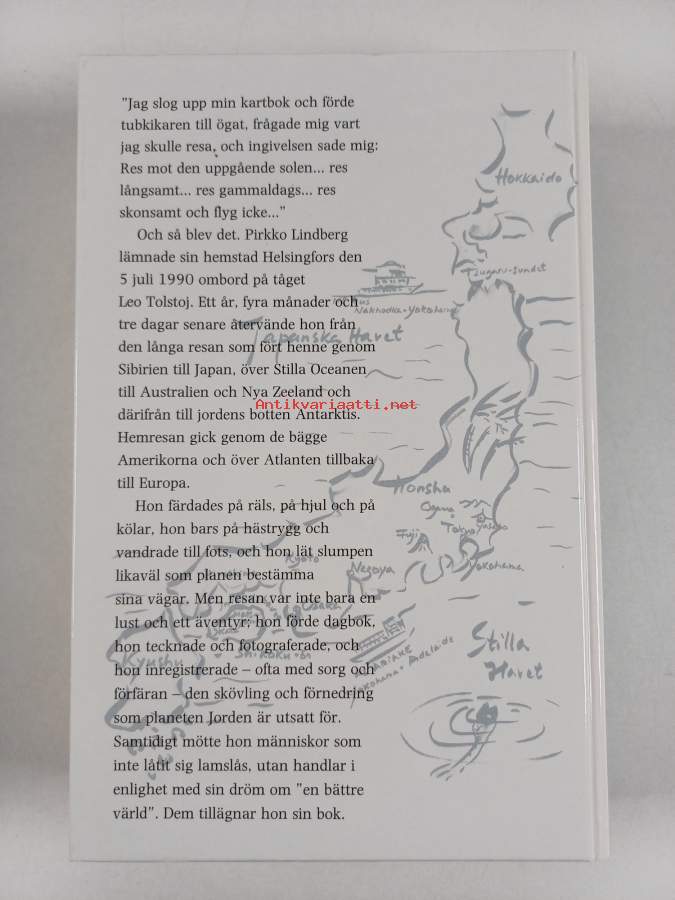 "Jag slog upp min kartbok och förde
tubkikaren till ögat, frågade mig vart
jag skulle resa, och ingivelsen sade mig:
Res mot den uppgående solen... res
långsamt... res gammaldags... res
skonsamt och flyg icke..."
Och så blev det. Pirkko Lindberg
lämnade sin hemstad Helsingfors den
5 juli 1990 ombord på tåget
Leo Tolstoj. Ett år, fyra månader och
tre dagar senare återvände hon från
den långa resan som fört henne genom
Sibirien till Japan, över Stilla Oceanen
till Australien och Nya Zeeland och
därifrån till jordens botten Antarktis.
Hemresan gick genom de bägge
Amerikorna och över Atlanten tillbaka
till Europa.
Hon färdades på räls, på hjul och på
kölar, hon bars på hästrygg och
vandrade till fots, och hon lät slumpen
likaväl som planen bestämma
sina vägar. Men resan var inte bara en
lust och ett äventyr; hon förde dagbok,
hon tecknade och fotograferade, och
hon inregistrerade – ofta med sorg och
förfäran – den skövling och förnedring
som planeten Jorden är utsatt för.
Samtidigt mötte hon människor som
inte låtit sig lamslås, utan handlar i
enlighet med sin dröm om "en bättre
värld". Dem tillägnar hon sin bok.
Hokkaido
Tsugaru-sundet
Nakhodka-Yokohama
Japanska Havet
Antikvariaatti.net
Honshu
Ogawa
Fuji
Tokyo
Yokohama
Nagoya
Kyoto
Osaka
Kyushu
Shikoku
Yokohama - Adelaide
Stilla
Havet